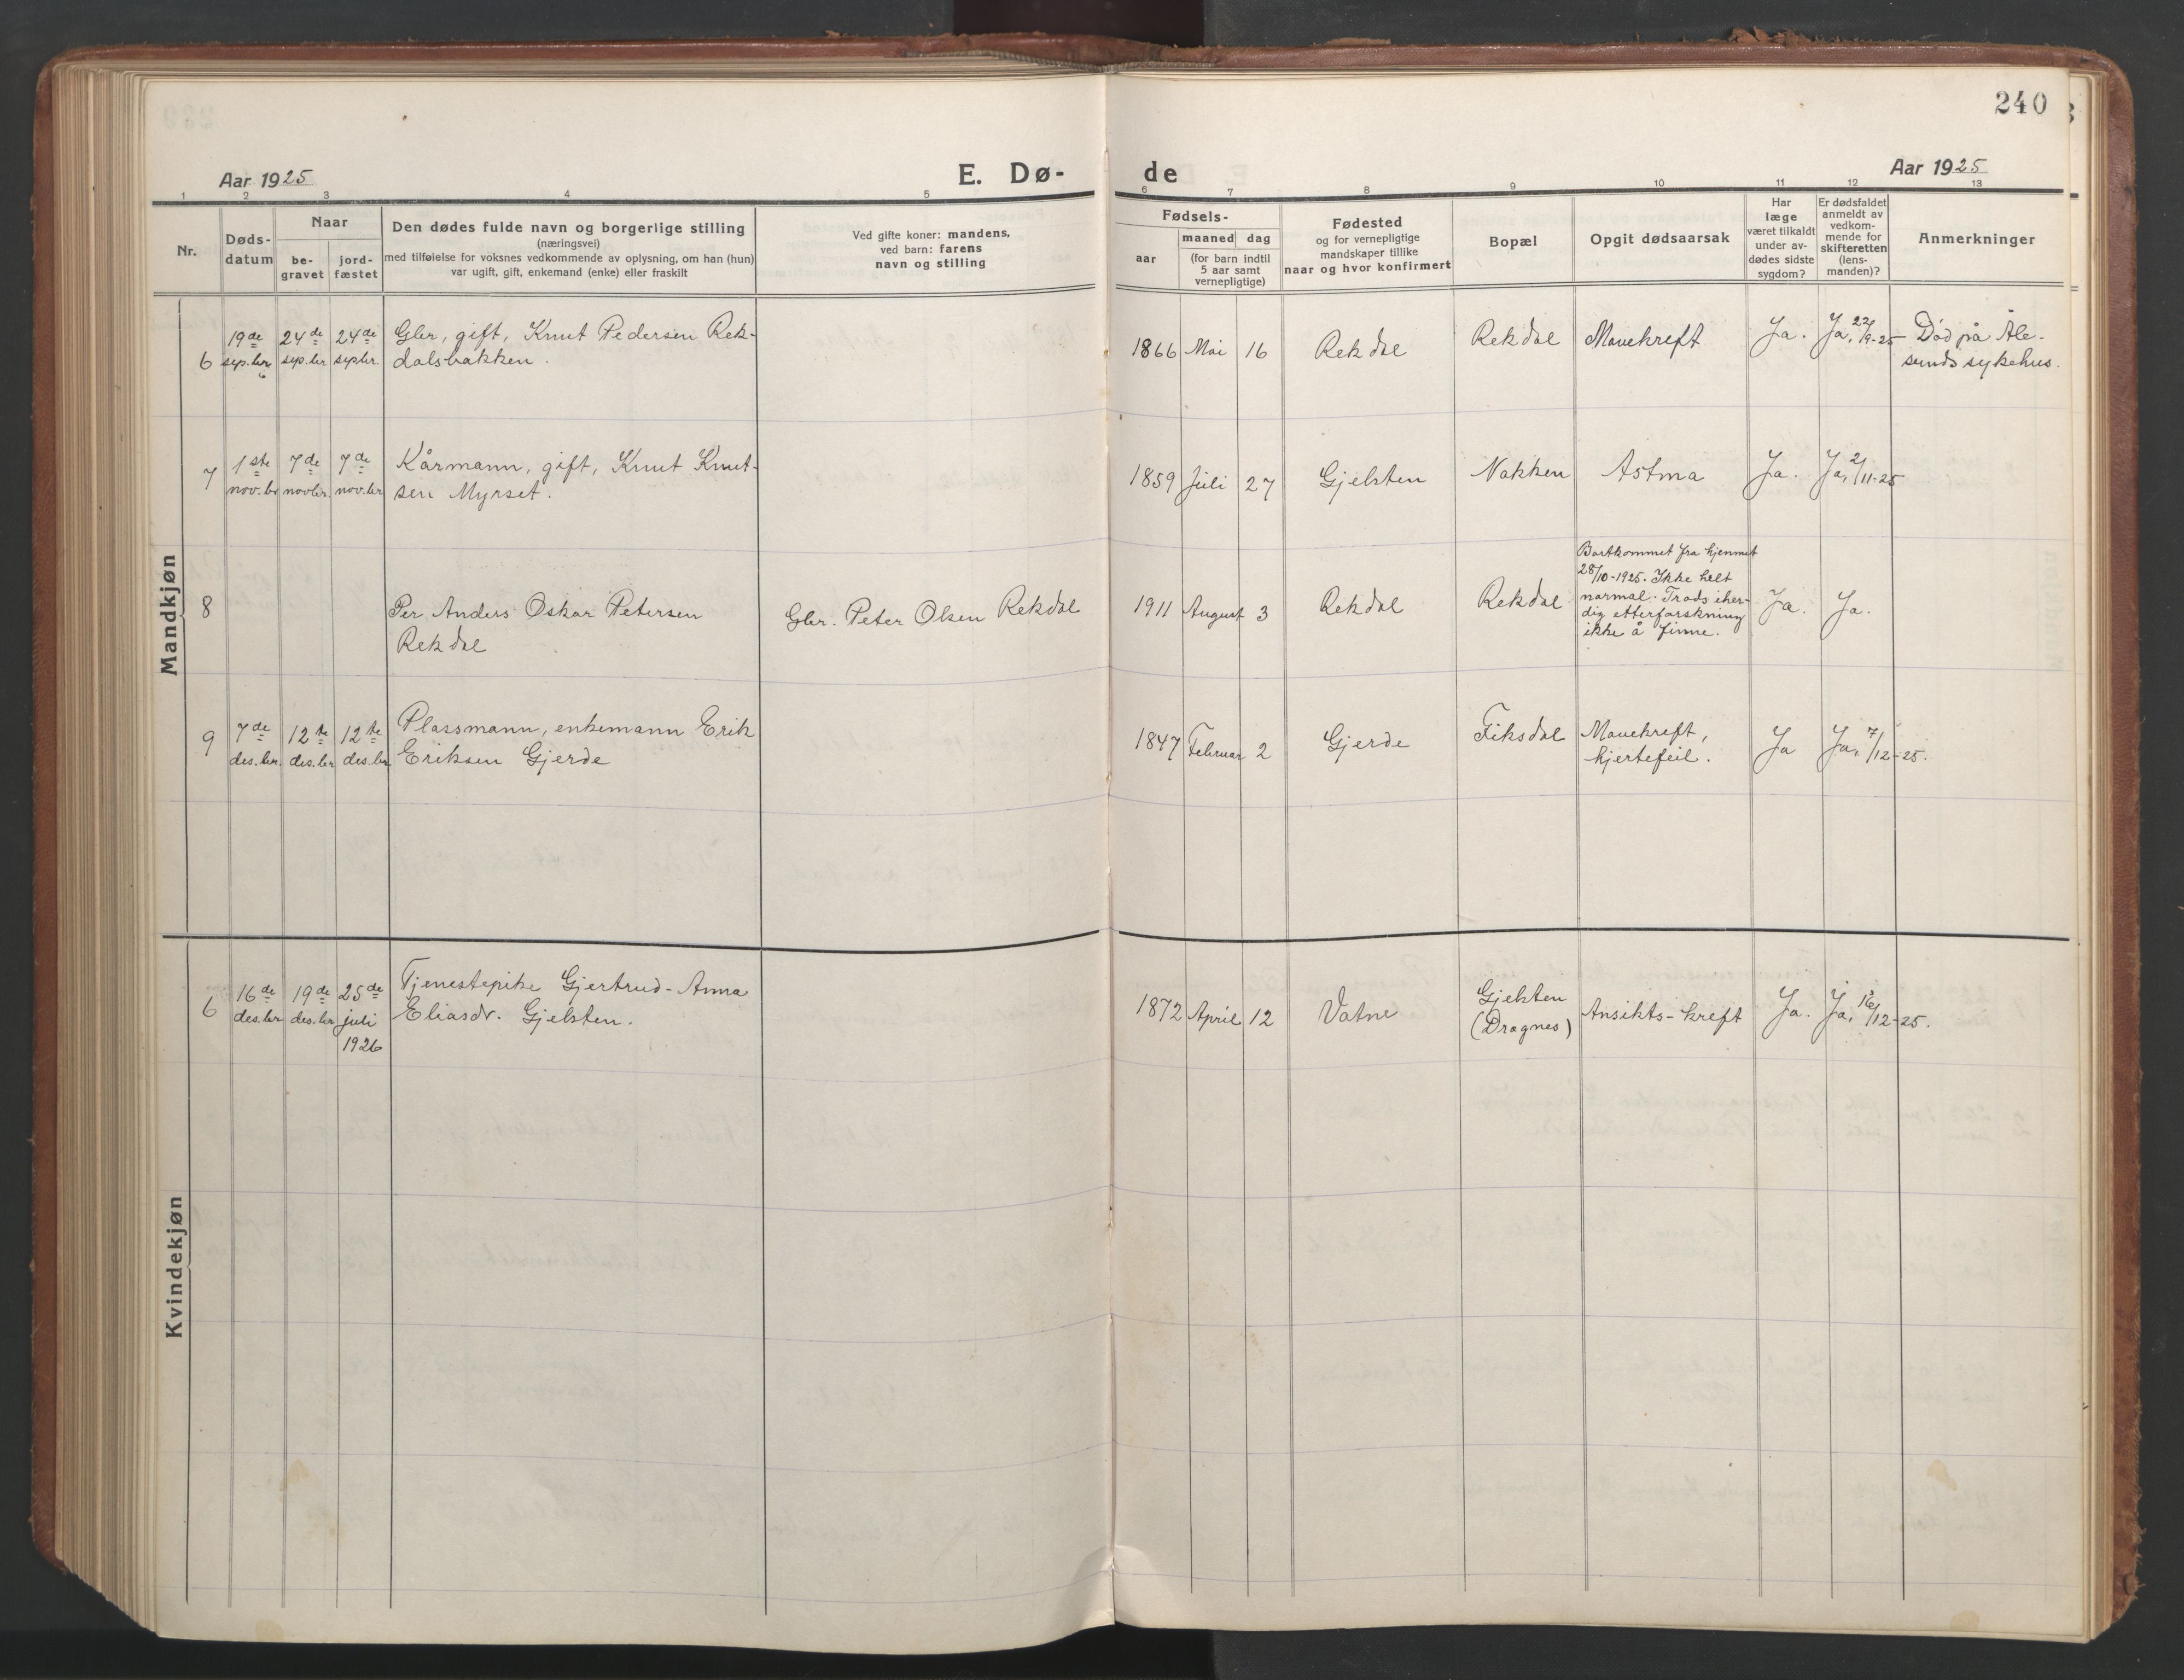 240
Aar 1925
E. Dø-
de
Aar 1925
1 2 3 4 5 6 7 8 9 10 11 12 13
Nr.
Døds-
datum
Naar
be-
gravet
jord-
fæstet
Den dødes fulde navn og borgerlige stilling
(næringsvei)
med tilføielse for voksnes vedkommende av oplysning, om han (hun)
var ugift, gift, enkemand (enke) eller fraskilt
Ved gifte koner: mandens,
ved barn: farens
navn og stilling
Fødsels-
aar
maaned dag
(for barn indtil
5 aar samt
vernepligtige)
Fødested
og for vernepligtige
mandskaper tillike
naar og hvor konfirmert
Bopæl
Opgit dødsaarsak
Har
læge
været tilkaldt
under av-
dødes sidste
sygdom?
Er dødsfaldet
anmeldt av
vedkom-
mende for
skifteretten
(lens-
manden)?
Anmerkninger
Mandkjøn
6
19de
sep.br
24de
sep.br
24de
sepbr.
Gbr, gift, Knut Pedersen Rek-
dalsbakken.
1866 Mai 16
Rekdal
Rekdal
Mavekreft
Ja.
Ja, 22/9-25
Död på Åle-
sunds sykehus.
7
1ste
nov.br
7de
novbr.
7de
nov.br
Kårmann, gift, Knut Knut-
sen Myrset.
1859 Juli 27
Gjelsten
Nakken
Astma
Ja.
Ja, 2/11-25
8
Per Anders Oskar Petersen
Rekdal
Gbr. Peter Olsen Rekdal
1911 August 3
Rekdal
Rekdal
Bortkommet fra hjemmet
28/10-1925. Ikke helt
normal. Trods iher-
dig etterforskning
ikke å finne.
Ja.
Ja.
9
7de
des.br.
12te
des.br
12te
des.br
Plassmann, enkemann Erik
Eriksen Gjerde
1847 Februar 2
Gjerde
Fiksdal
Mavekreft,
hjertefeil.
Ja
Ja, 7/12-25.
Kvindekjøn
6
16de
des.br
19de
des.br
25de
juli
1926
Tjenestepike Gjertrud-Anna
Eliasdr. Gjelsten.
1872 April 12
Vatne
Gjelsten
(Dragnes)
Ansikts-kreft
Ja.
Ja, 16/12-25.